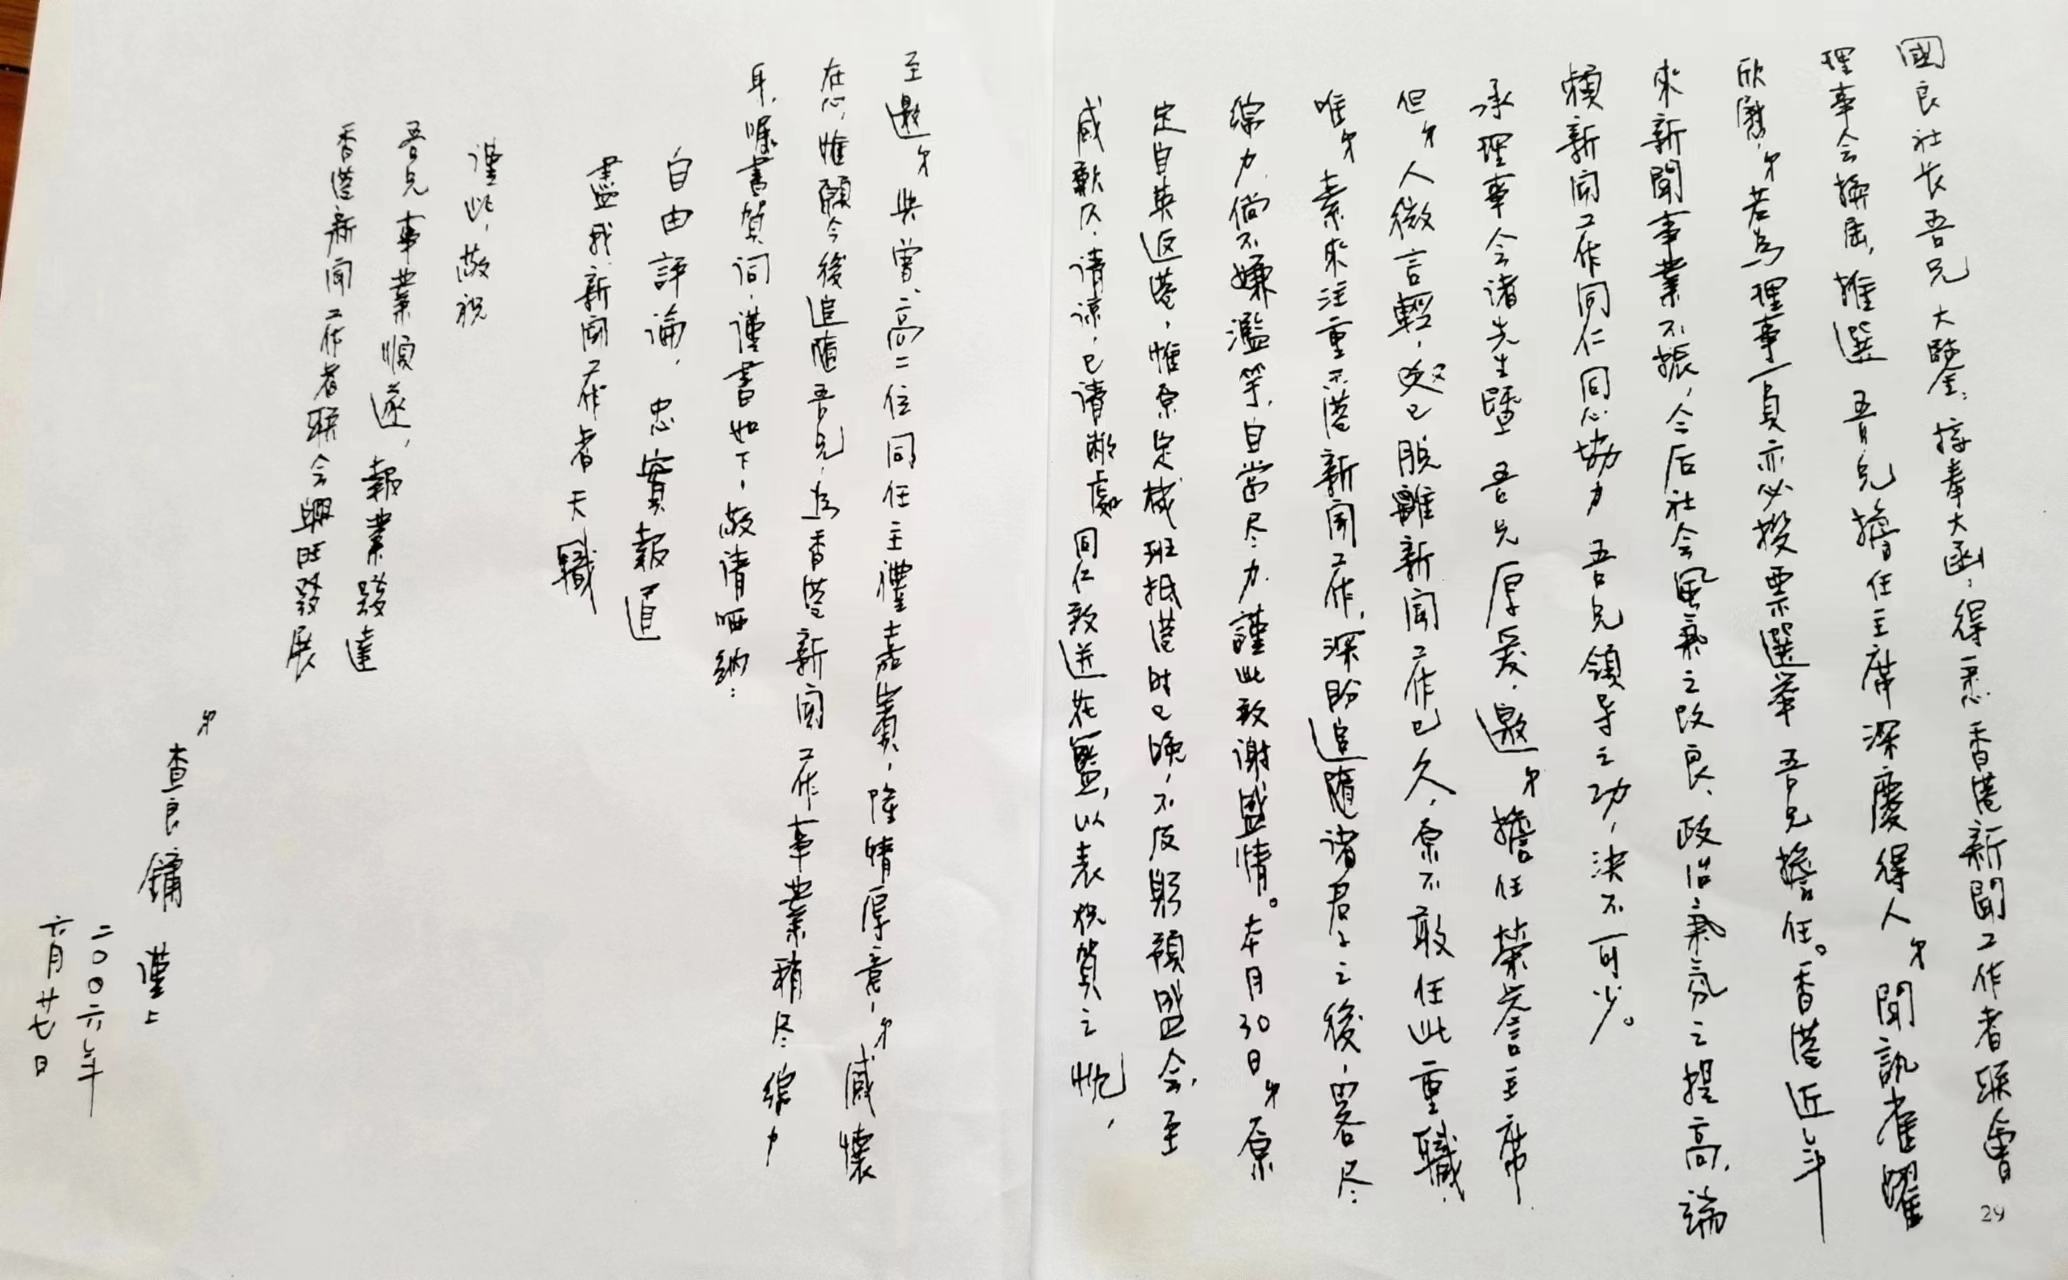 國良社长吾兄大鑒：接奉大函，得悉香港新聞工作者联會
理事会换届，推選 吾兄擔任主席深慶得人，弟聞訊雀躍
欣慰，弟若為理事一員亦必投票選举 吾兄擔任。香港近年
來新聞事業不振，今后社会風氣之改良、政治氣氛之提高，端
賴新聞工作同仁同心協力 吾兄领导之功，决不可少。
承理事会诸先生暨 吾兄厚爱，邀弟擔任荣誉主席
但弟人微言輕，又已脱離新聞工作已久，原不敢任此重職，
唯弟素來注重香港新聞工作，深盼追隨诸君子之後，畧尽
綿力，倘不嫌濫竽，自當尽力，謹此致谢盛情。本月30日弟原
定自英返港，惟原定機班抵港时已晚，不及躬預盛会，至
感歉仄，请谅，已请敝處同仁致送花籃，以表祝賀之忱，
至邀弟与曾、高二位同任主禮嘉賓，隆情厚意，弟感懷
在心，惟願今後追隨吾兄，为香港新聞工作事業稍尽綿力
耳，囑書賀词，谨書如下，敬请哂纳：
自由評論，忠實報道
盡我新聞工作者天職
谨此，敬祝
吾兄事業順遂，報業發達
香港新聞工作者联会興旺發展
弟
查良鏞 谨上
二〇〇六年
六月廿七日
29